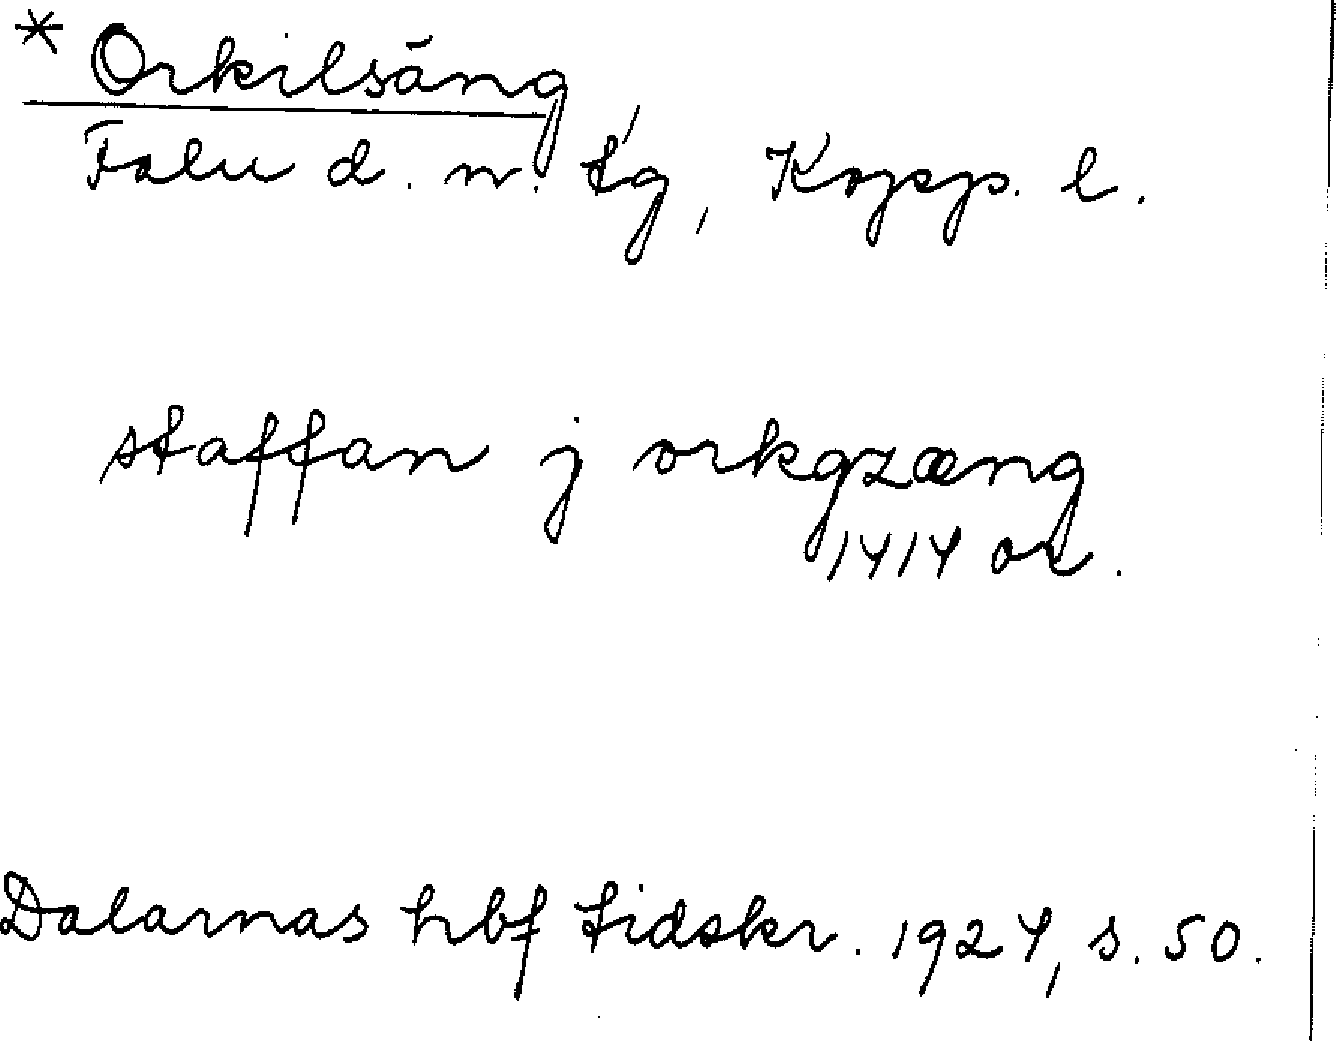 * Orkilsäng
Falu d. n. tg, Kopp. l.
staffan j orkgzæng
1414 or.
Dalarnas hbf tidskr. 1924, s. 50.